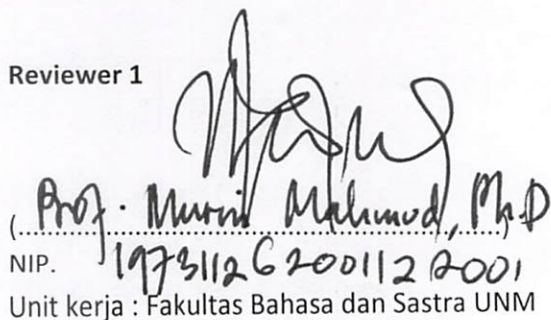 Reviewer 1
(Prof. Murni Mahmud, Ph.D
NIP. 197311262001122001
Unit kerja : Fakultas Bahasa dan Sastra UNM